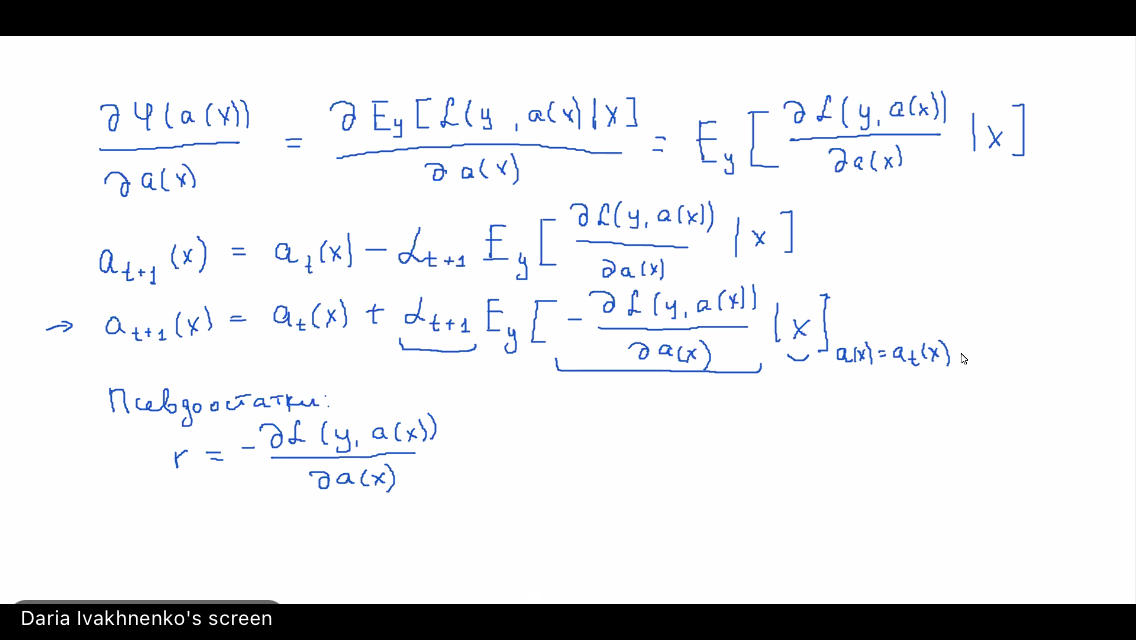 ∂Ψ(a(x))/∂a(x) = ∂E_y[ℒ(y, a(x)|x]/∂a(x) = E_y[∂ℒ(y, a(x))/∂a(x) | x]
a_{t+1}(x) = a_t(x) − α_{t+1} E_y[∂ℒ(y, a(x))/∂a(x) | x]
→ a_{t+1}(x) = a_t(x) + α_{t+1} E_y[−∂ℒ(y, a(x))/∂a(x) | x]_{a(x)=a_t(x)}
Псевдоостатки:
r = −∂ℒ(y, a(x))/∂a(x)
Daria Ivakhnenko's screen